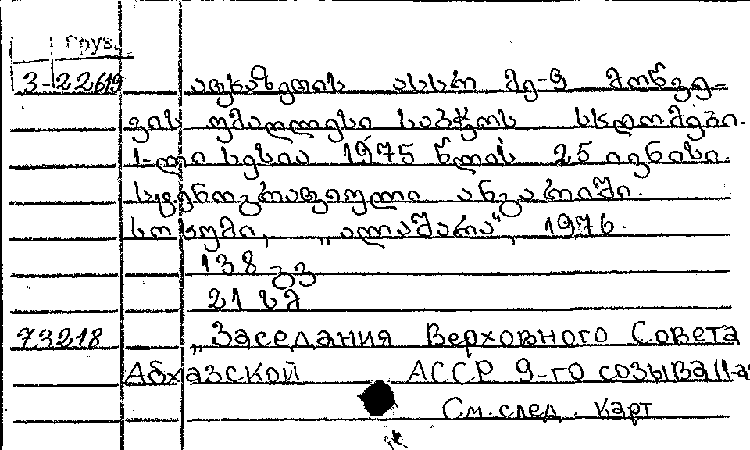 Груз.
3-22619 აფხაზეთის ასსრ მე-9 მოწვე-
ვის უმაღლესი საბჭოს სხდომები.
I-ლი სესია 1975 წლის 25 ივნისი.
სტენოგრაფიული ანგარიში.
სოხუმი, „ალაშარა", 1976.
138 გვ
21 სმ
73218 „Заседания Верховного Совета
Абхазской АССР 9-го созыва
См. след. карт